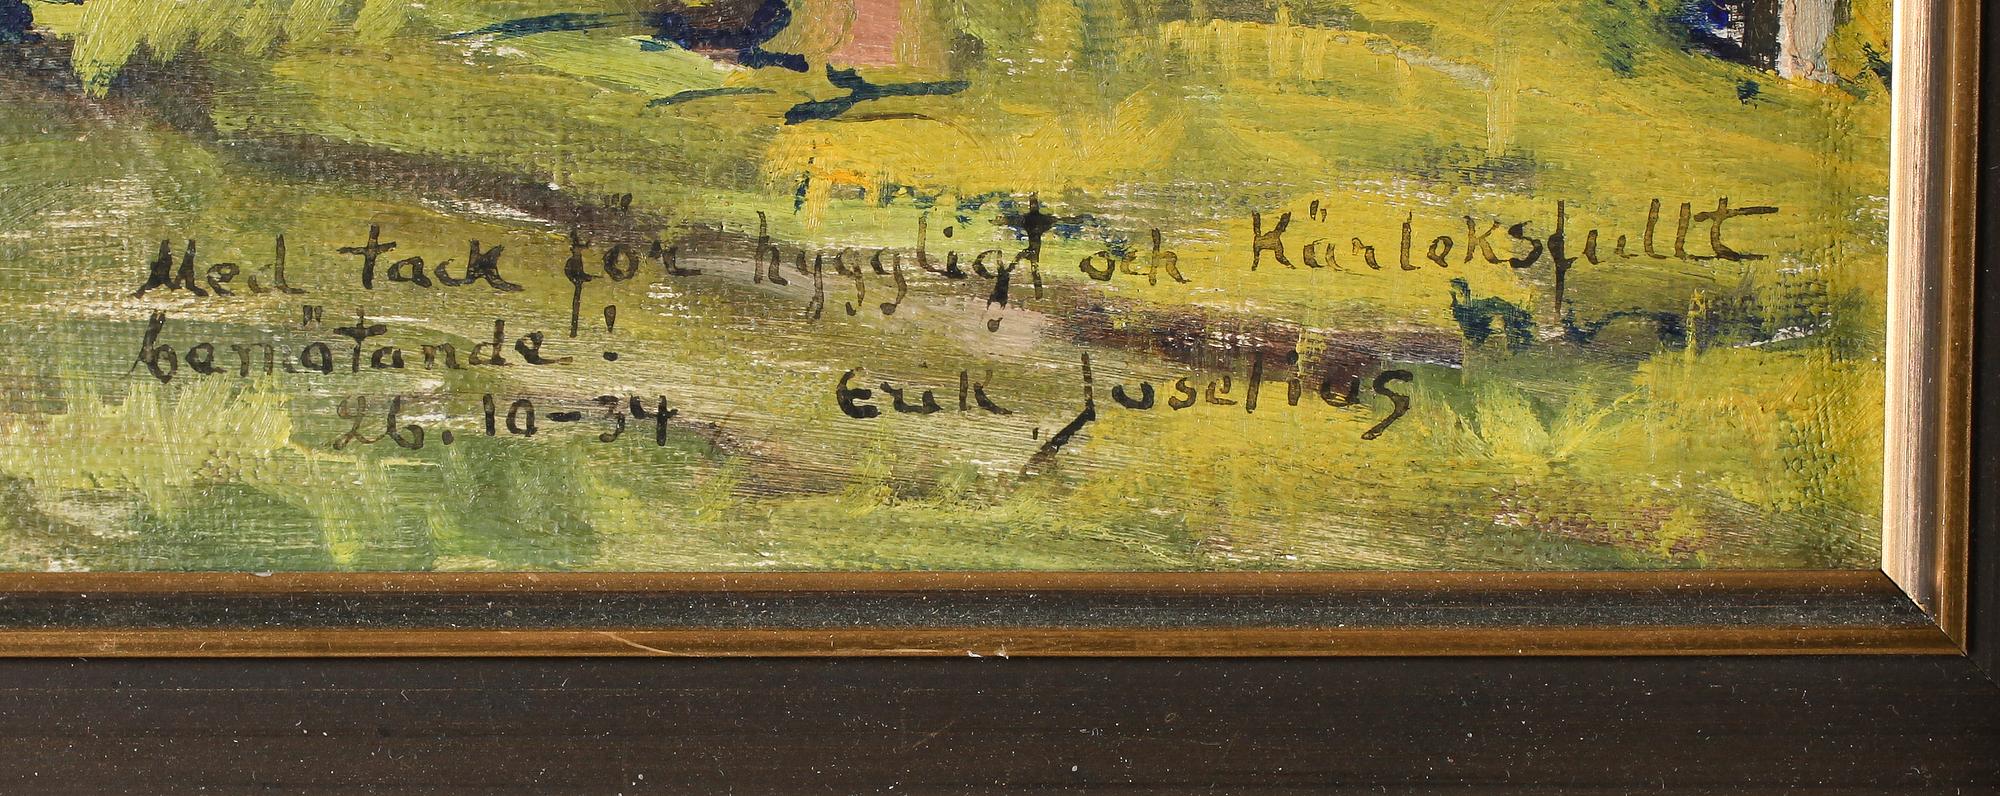 Med tack för hyggligt och Kärleksfullt
bemötande!
26. 10-34 Erik Juselius